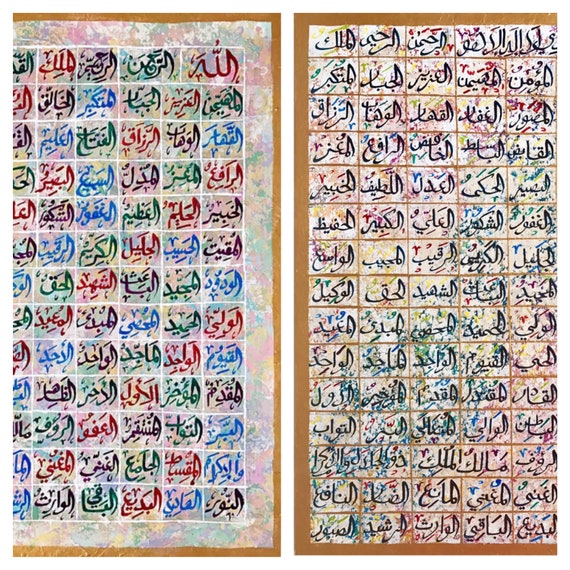 الله الرحمن الرحيم الملك
المهيمن العزيز الجبار المتكبر الخالق
القهار الوهاب الرزاق الفتاح العليم
الرافع المعز المذل السميع البصير
الخبير الحليم العظيم الغفور الشكور
المقيت الحسيب الجليل الكريم الرقيب
الودود المجيد الباعث الشهيد الحق
الولي الحميد المحصي المبدئ المعيد
القيوم الواجد الماجد الواحد الاحد
المقدم المؤخر الأول الآخر الظاهر
البر التواب المنتقم العفو الرؤوف
والإكرام المقسط الجامع الغني المغني
النور الهادي البديع الباقي الوارث
الرحمن الرحيم الملك
المؤمن المهيمن العزيز الجبار المتكبر
المصور الغفار القهار الوهاب الرزاق
القابض الباسط الخافض الرافع المعز
البصير الحكم العدل اللطيف الخبير
الغفور الشكور العلي الكبير الحفيظ
الجليل الكريم الرقيب المجيب الواسع
المجيد الباعث الشهيد الحق الوكيل
الولي الحميد المحصي المبدئ المعيد
الحي القيوم الواجد الماجد الواحد
القادر المقتدر المقدم المؤخر الاول
الباطن الوالي المتعالي البر التواب
الرؤوف مالك الملك ذو الجلال والاكرام
الغني المغني المانع الضار النافع
البديع الباقي الوارث الرشيد الصبور